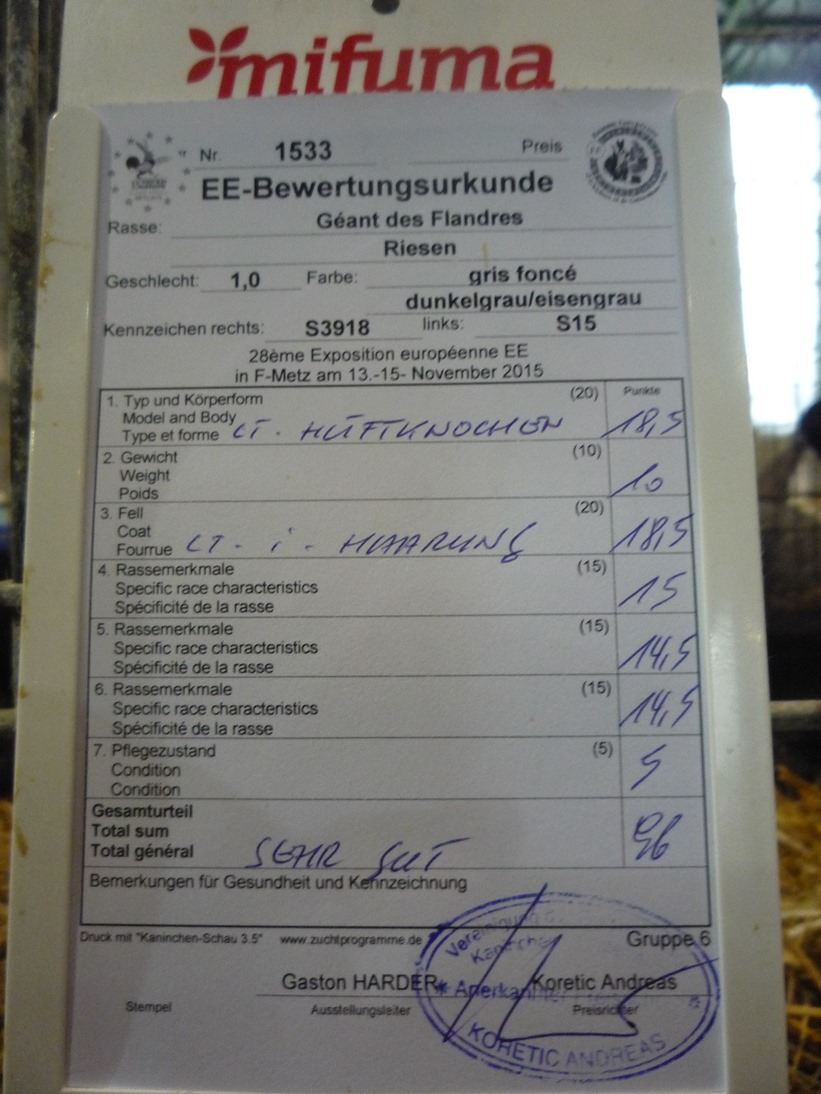 mifuma
Nr. 1533 Preis
EE-Bewertungsurkunde
Rasse: Géant des Flandres
Riesen
Geschlecht: 1,0 Farbe: gris foncé
dunkelgrau/eisengrau
Kennzeichen rechts: S3918 links: S15
28ème Exposition européenne EE
in F-Metz am 13.-15- November 2015
1. Typ und Körperform (20) Punkte
Model and Body
Type et forme LT. HÜFTKNOCHEN 18,5
2. Gewicht (10)
Weight
Poids 10
3. Fell (20)
Coat
Fourrue LT. i. HAARUNG 18,5
4. Rassemerkmale (15)
Specific race characteristics 15
Spécificité de la rasse
5. Rassemerkmale (15)
Specific race characteristics 14,5
Spécificité de la rasse
6. Rassemerkmale (15)
Specific race characteristics 14,5
Spécificité de la rasse
7. Pflegezustand (5)
Condition 5
Condition
Gesamturteil
Total sum 96
Total général SEHR GUT
Bemerkungen für Gesundheit und Kennzeichnung
Druck mit "Kaninchen-Schau 3.5" www.zuchtprogramme.de Gruppe 6
Gaston HARDER Koretic Andreas
Stempel Ausstellungsleiter Preisrichter
KORETIC ANDREAS